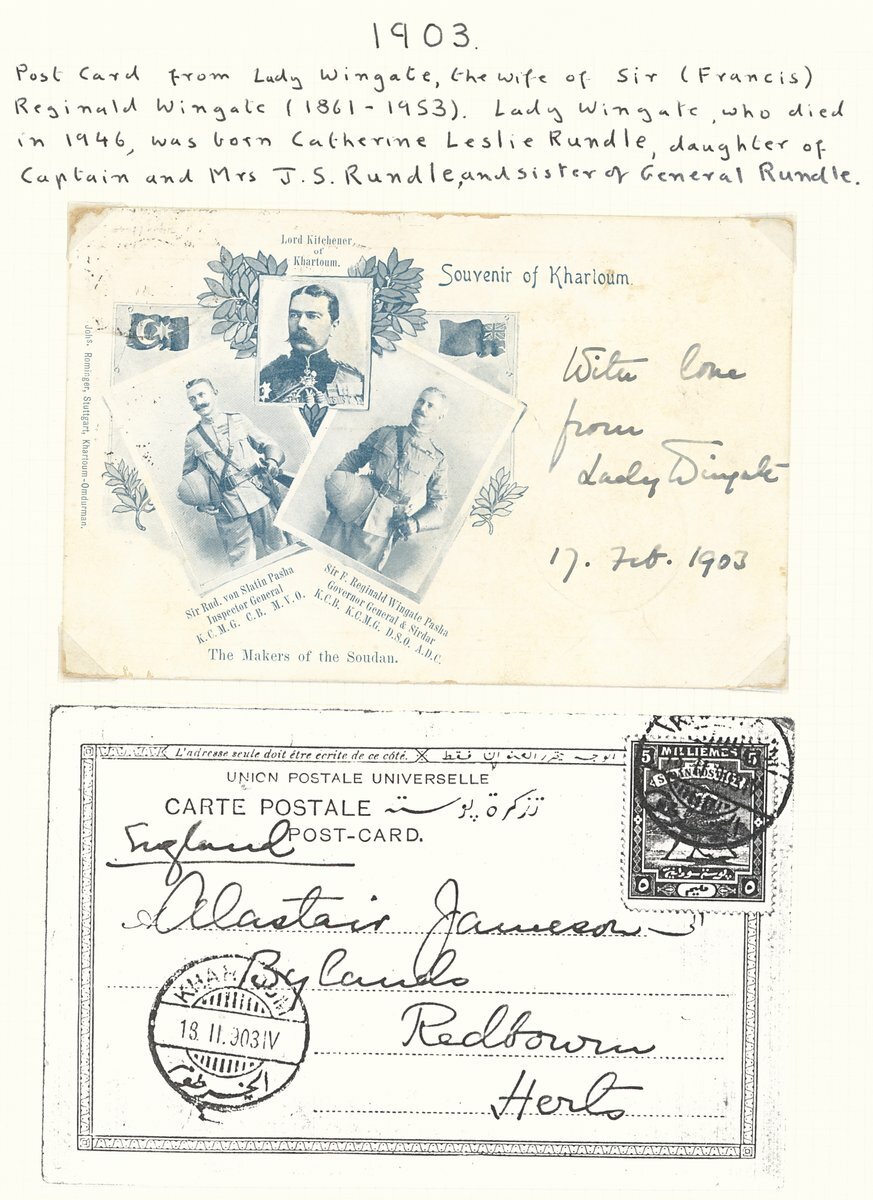 1903.
Post Card from Lady Wingate, the wife of Sir (Francis)
Reginald Wingate (1861-1953). Lady Wingate, who died
in 1946, was born Catherine Leslie Rundle, daughter of
Captain and Mrs J.S. Rundle, and sister of General Rundle.
Lord Kitchener,
of
Khartoum.
Souvenir of Khartoum.
Johs. Rominger, Stuttgart, Khartoum-Omdurman.
With love
from
Lady Wingate
17. Feb. 1903
Sir Rud. von Slatin Pasha
Inspector General
K.C.M.G. C.B. M.V.O.
Sir F. Reginald Wingate Pasha
Governor General & Sirdar
K.C.B. K.C.M.G. D.S.O. A.D.C.
The Makers of the Soudan.
L'adresse seule doit être écrite de ce côté.
UNION POSTALE UNIVERSELLE
CARTE POSTALE تذكرة پوسته
POST-CARD.
England
5 MILLIEMES 5
٥ مليم ٥
Alastair Jameson
Bylands
Redbourn
Herts
KHARTOUM
18 II.903 IV
الخرطوم